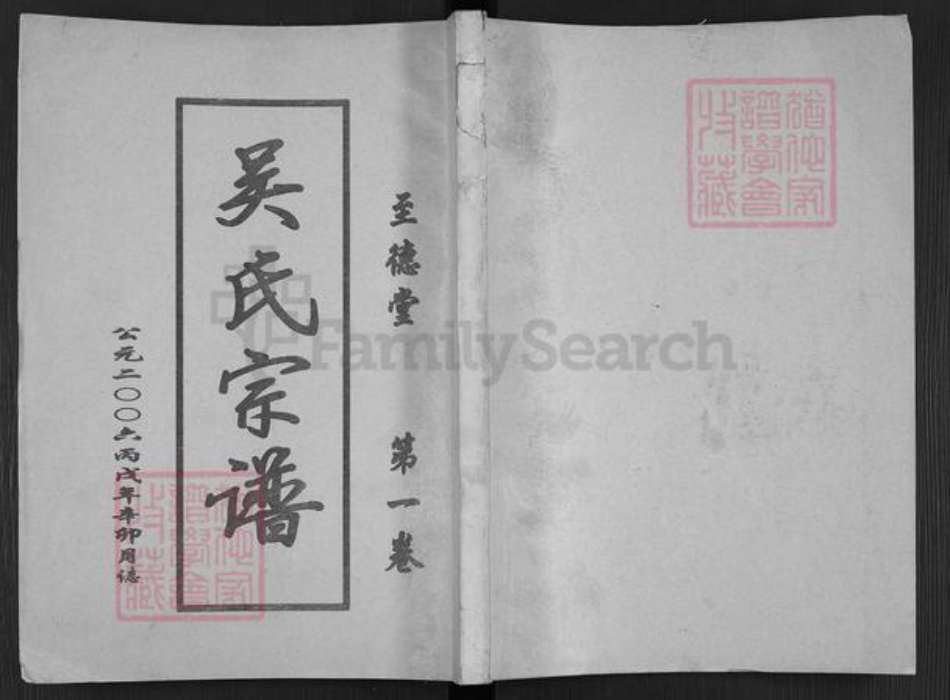 至德堂 第一卷
吴氏宗谱
公元二〇〇六丙戌年辛卯月
猶他家
譜學會
收藏
猶他家
譜學會
收藏
FamilySearch